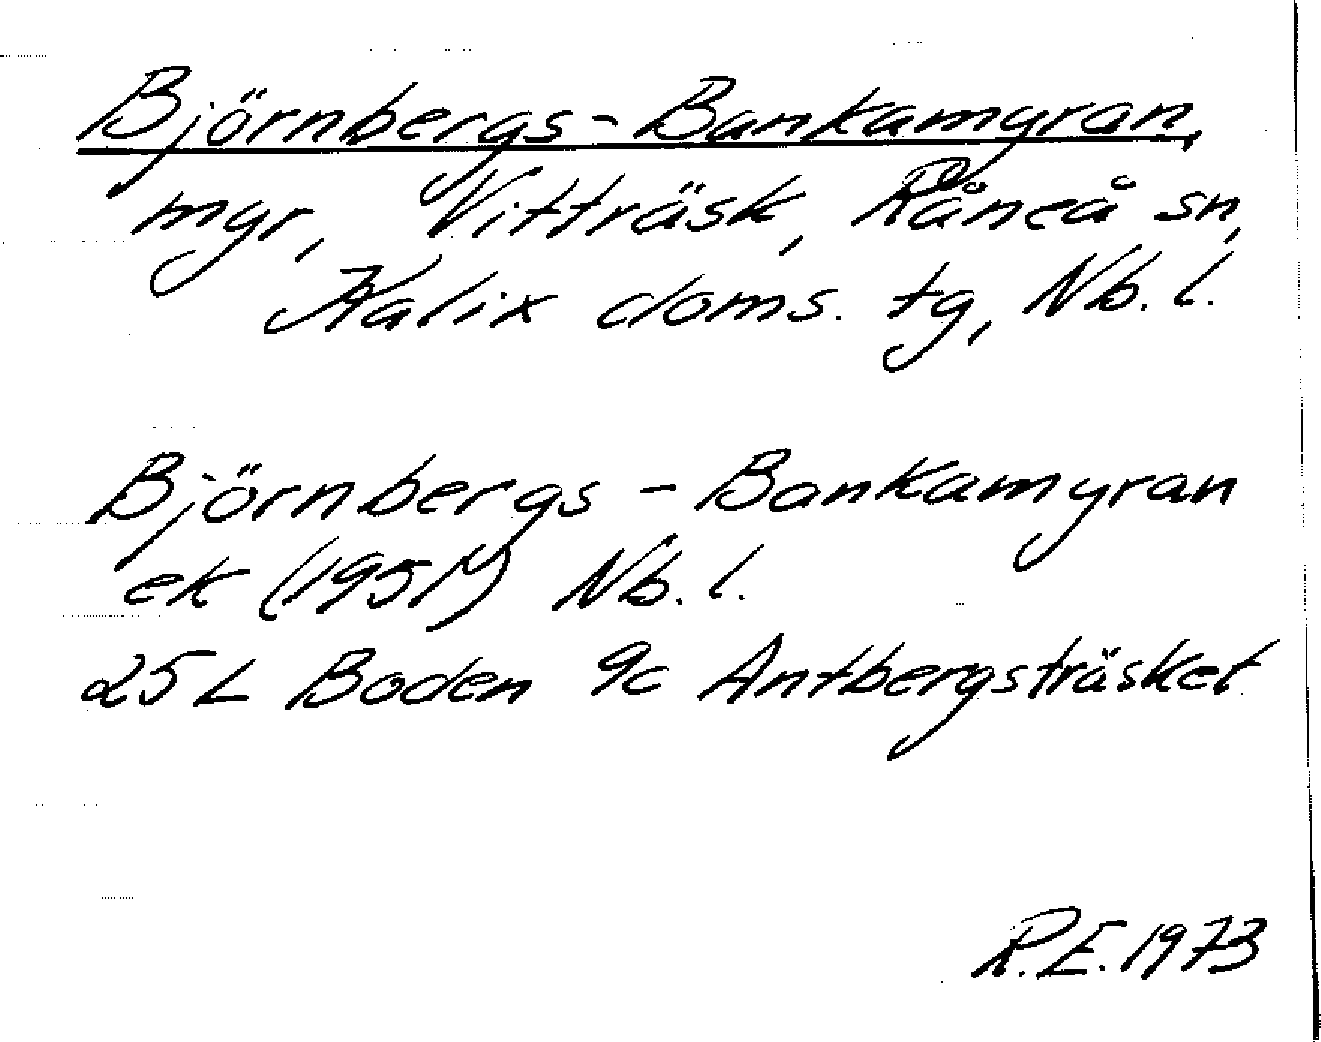 Björnbergs-Bankamyran,
myr, Vitträsk, Råneå sn,
Kalix doms. tg, Nb. l.
Björnbergs - Bankamyran
ek (1951) Nb. l.
25 L Boden 9c Antbergsträsket
R.E. 1973